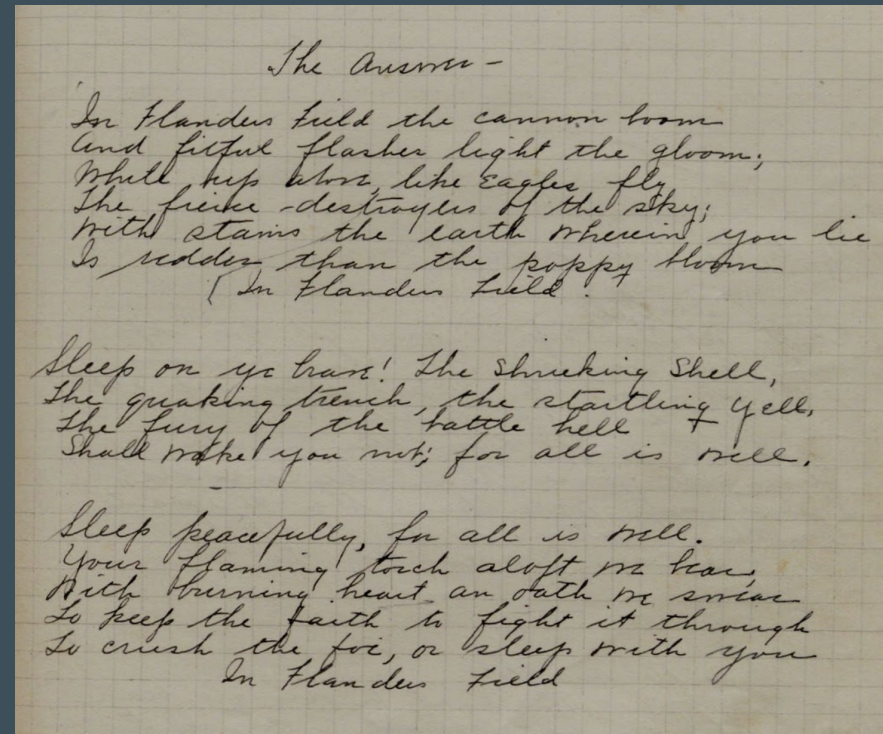 The Answer -
In Flanders Field the cannon boom
And fitful flashes light the gloom;
While up above, like Eagles fly,
The fierce-destroyers of the sky;
With stains the earth wherein you lie
Is redder than the poppy bloom
In Flanders Field.
Sleep on ye brave! The shrieking shell,
The quaking trench, the startling yell,
The fury of the battle hell
Shall wake you not; for all is well.
Sleep peacefully, for all is well.
Your flaming torch aloft we bear,
With burning heart an oath we swear
To keep the faith to fight it through
To crush the foe, or sleep with you
In Flanders Field